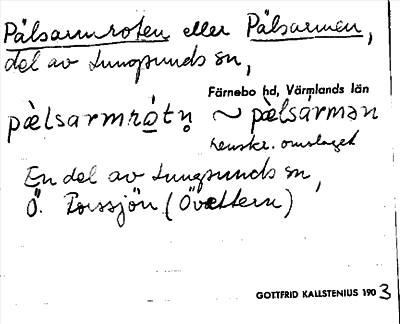 Pälsarmroten eller Pälsarmen,
del av Lungsunds sn,
Färnebo hd, Värmlands län
pæ̀lsarmrót̥n̥ ~ pæ̀lsármən
renskr. omslaget
En del av Lungsunds sn,
Ö. Torssjön (Övættern)
GOTTFRID KALLSTENIUS 1903